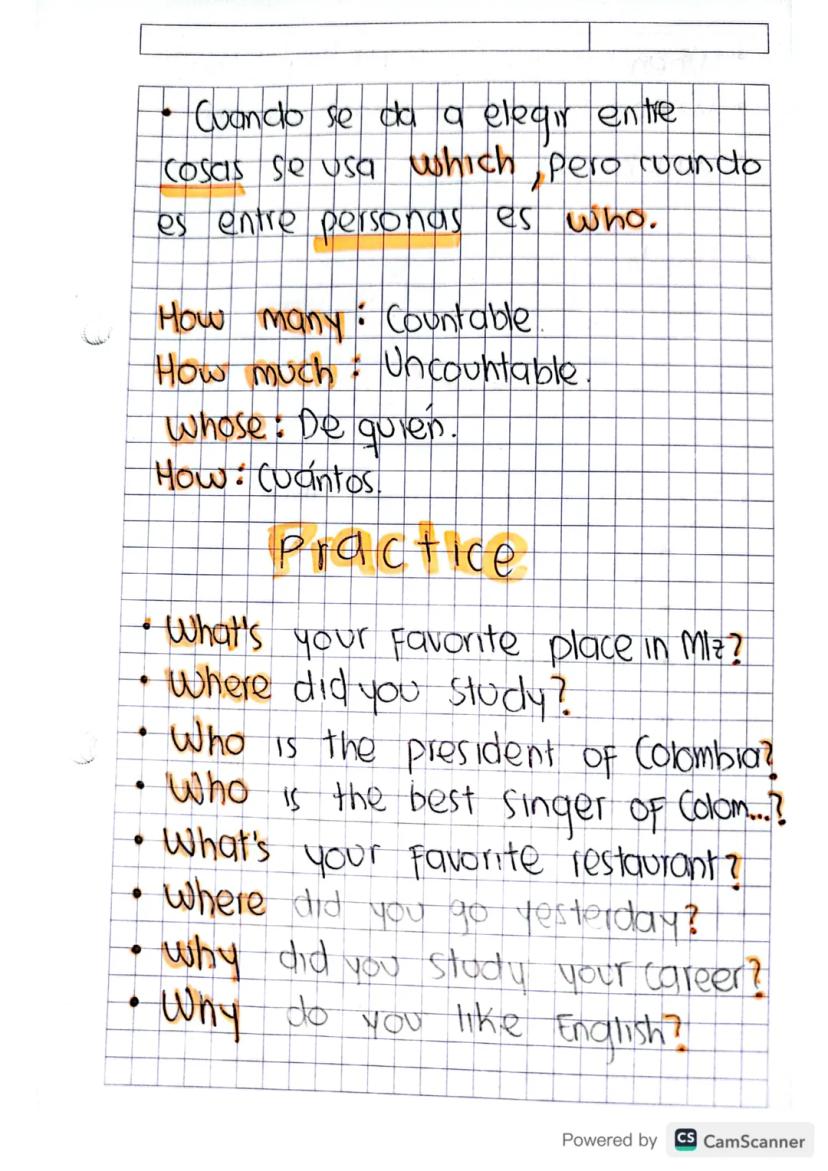 • Cuando se da a elegir entre
cosas se usa which, pero cuando
es entre personas es who.
How many: Countable.
How much: Uncountable.
Whose: De quién.
How: Cuántos.
Practice
• What's your favorite place in Mlz?
• Where did you study?
• Who is the president of Colombia?
• Who is the best singer of Colom...?
• What's your favorite restaurant?
• Where did you go yesterday?
• Why did you study your career?
• Why do you like English?
Powered by CS CamScanner